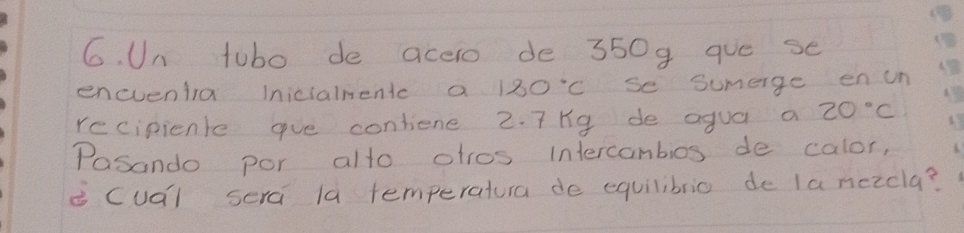 6. Un tubo de acero de 350g que se
encuentra inicialmente a 180°C se sumerge en un
recipiente que contiene 2.7 Kg de agua a 20°C
Pasando por alto otros intercambios de calor,
¿Cuál será la temperatura de equilibrio de la mezcla?